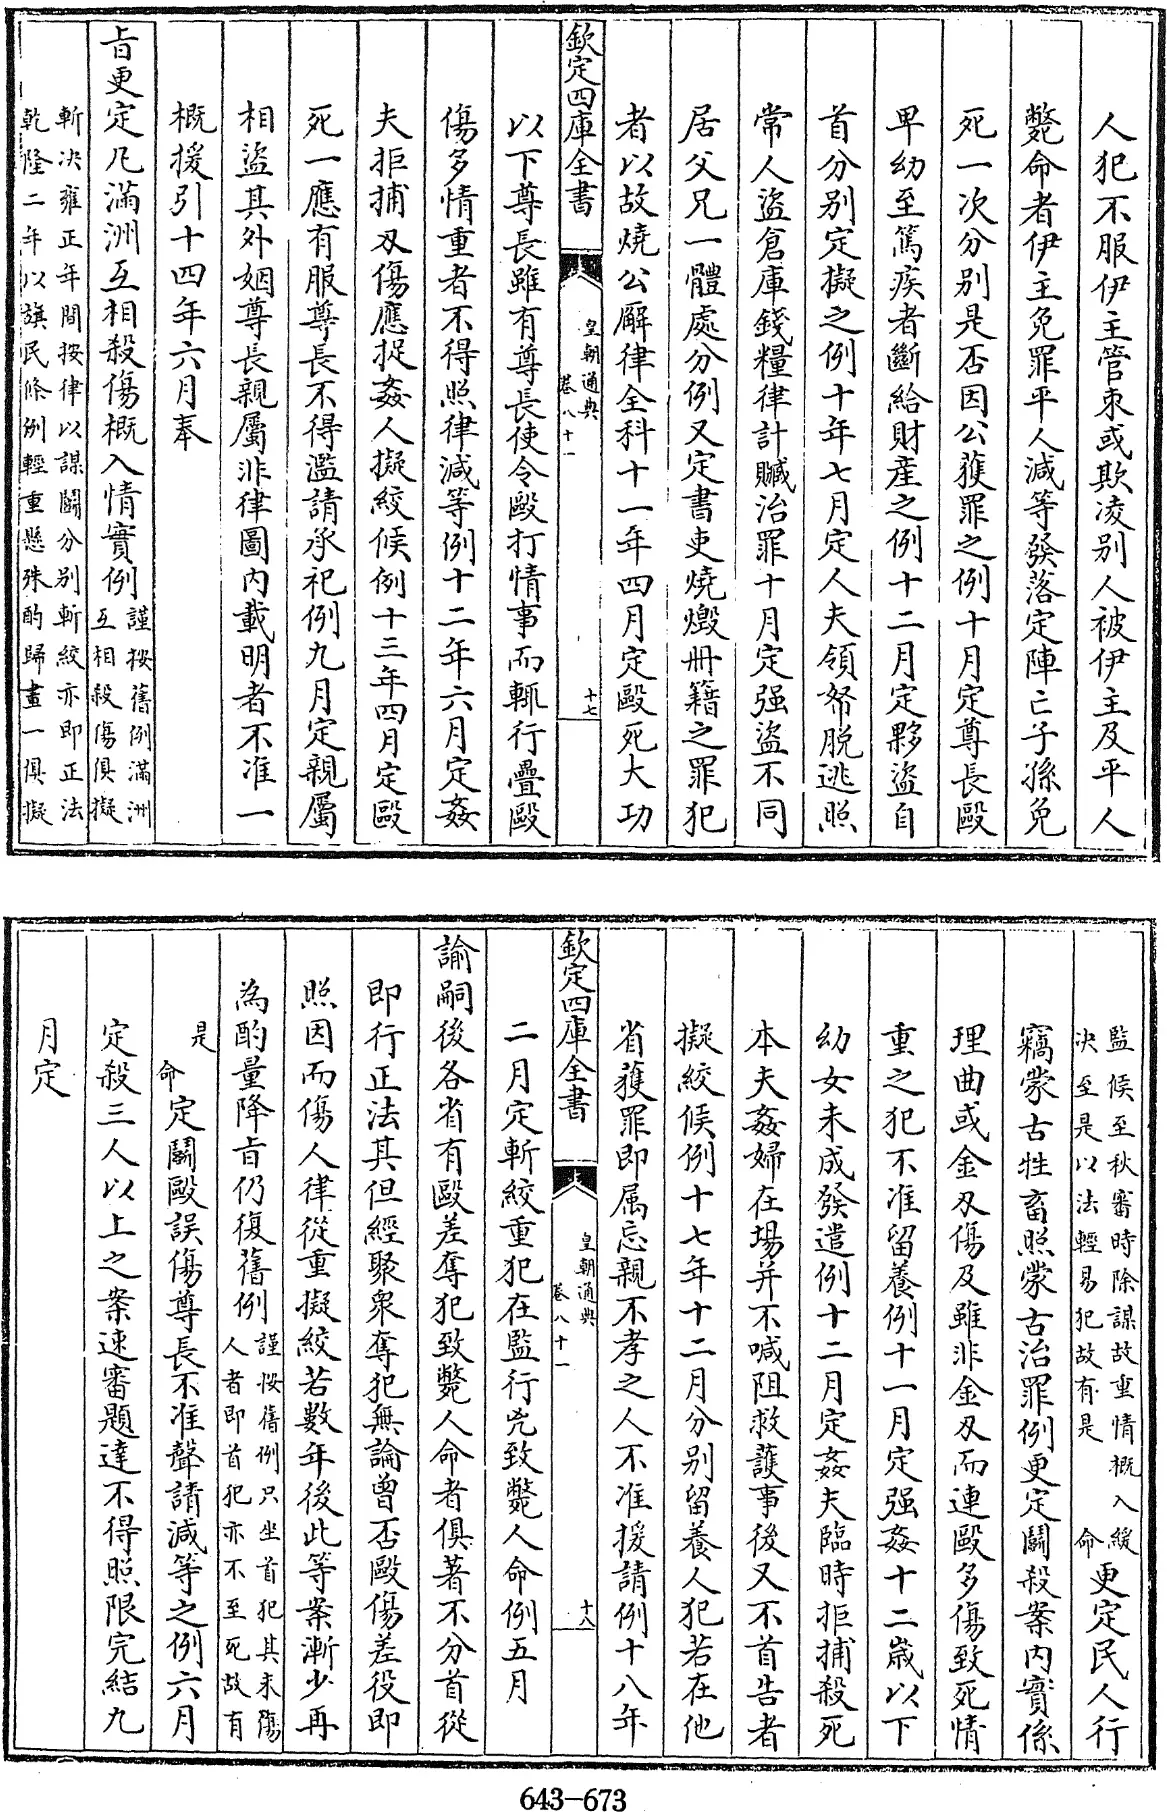 人犯不服伊主管束或欺凌别人被伊主及平人
斃命者伊主免罪平人減等發落定陣亡子孫免
死一次分别是否因公獲罪之例十月定尊長毆
卑幼至篤疾者斷給財産之例十二月定夥盜自
首分别定擬之例十年七月定人夫領帑脱逃照
常人盜倉庫錢糧律計贓治罪十月定强盜不同
居父兄一體處分例又定書吏燒燬冊籍之罪犯
者以故燒公廨律全科十一年四月定毆死大功
欽定四庫全書
皇朝通典
卷八十一
十七
以下尊長雖有尊長使令毆打情事而輒行疊毆
傷多情重者不得照律減等例十二年六月定姦
夫拒捕刃傷應捉姦人擬絞候例十三年四月定毆
死一應有服尊長不得濫請承祀例九月定親屬
相盜其外姻尊長親屬非律圖内載明者不准一
概援引十四年六月奉
㫖更定凡滿洲互相殺傷概入情實例
謹按舊例滿洲
互相殺傷俱擬
斬决雍正年間按律以謀鬭分别斬絞亦即正法
乾隆二年以旗民條例輕重懸殊酌歸畫一俱擬
監候至秋審時除謀故重情概入緩
决至是以法輕易犯故有是
命
更定民人行
竊蒙古牲畜照蒙古治罪例更定鬭殺案内實係
理曲或金刃傷及雖非金刃而連毆多傷致死情
重之犯不准留養例十一月定强姦十二歲以下
幼女未成發遣例十二月定姦夫臨時拒捕殺死
本夫姦婦在場并不喊阻救護事後又不首告者
擬絞候例十七年十二月分别留養人犯若在他
省獲罪即属忘親不孝之人不准援請例十八年
欽定四庫全書
皇朝通典
卷八十一
十八
二月定斬絞重犯在監行兇致斃人命例五月
諭嗣後各省有毆差奪犯致斃人命者俱著不分首從
即行正法其但經聚衆奪犯無論曾否毆傷差役即
照因而傷人律從重擬絞若數年後此等案漸少再
為酌量降㫖仍復舊例
謹按舊例只坐首犯其未傷
人者即首犯亦不至死故有
是
命
定鬭毆誤傷尊長不准聲請減等之例六月
定殺三人以上之案速審題達不得照限完結九
月定
643-673